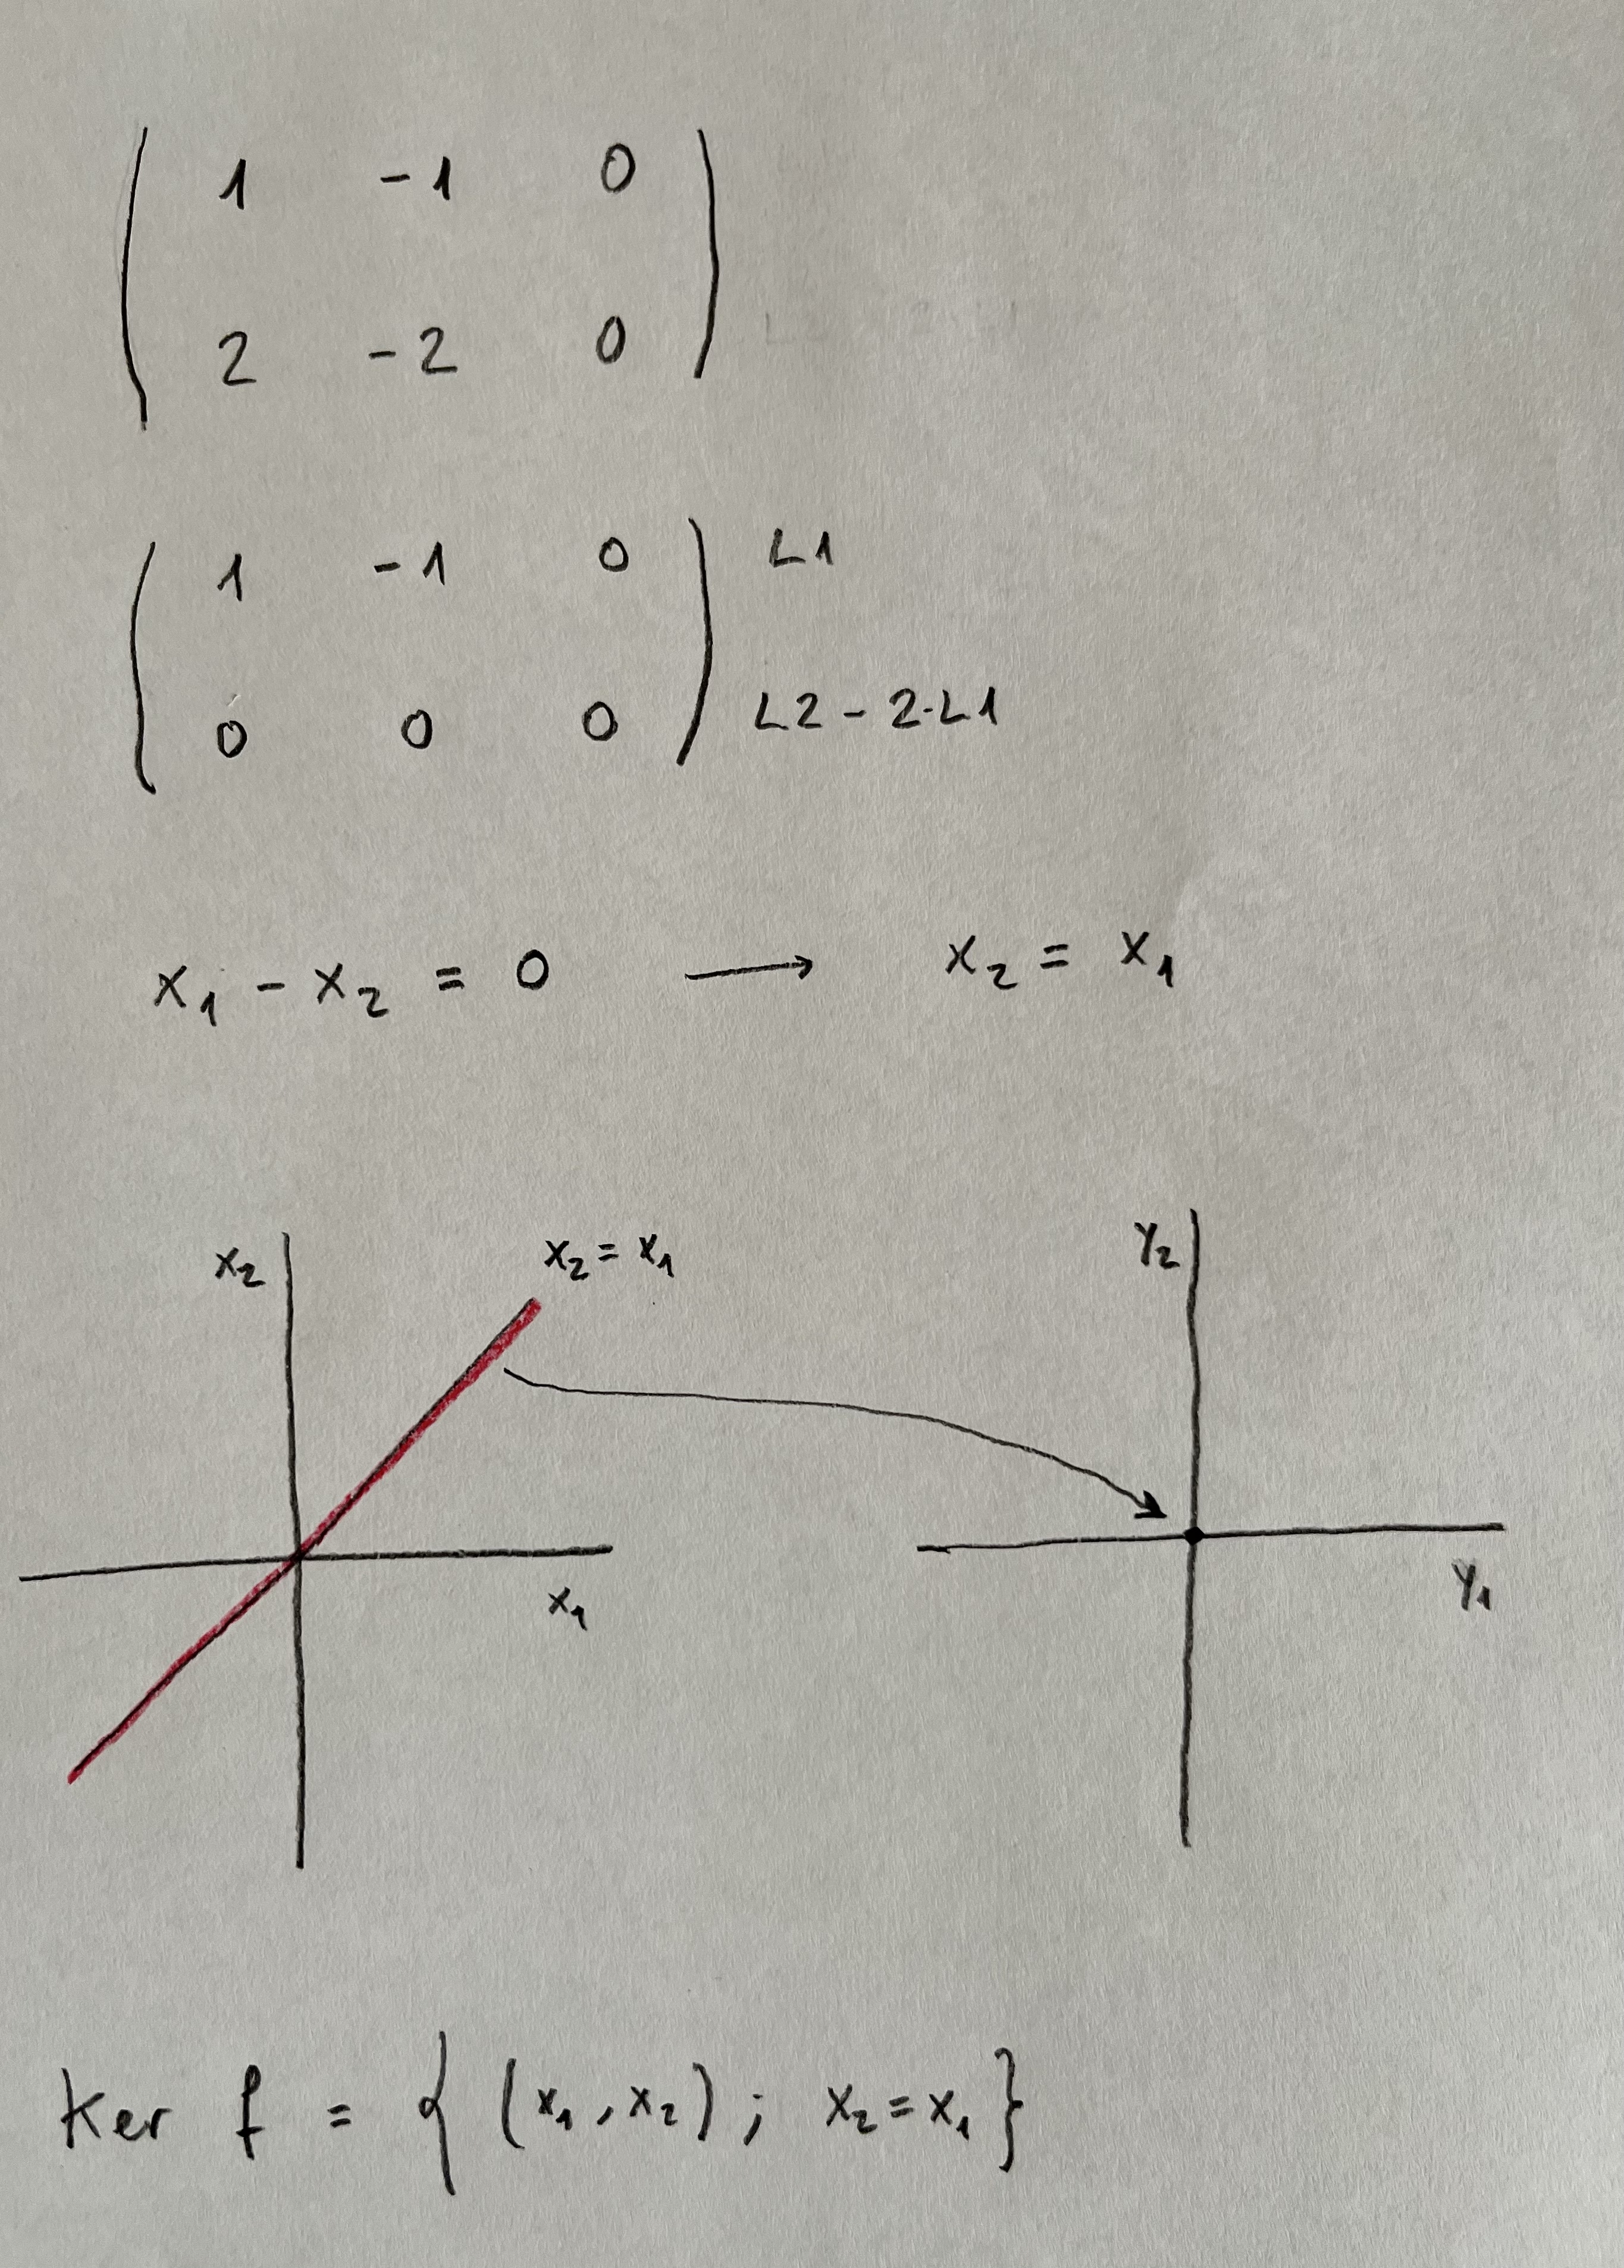 1 -1 0
2 -2 0
1 -1 0 L1
0 0 0 L2 - 2·L1
x₁ - x₂ = 0 → x₂ = x₁
x₂ x₂ = x₁ y₂
x₁ y₁
Ker f = { (x₁, x₂) ; x₂ = x₁ }